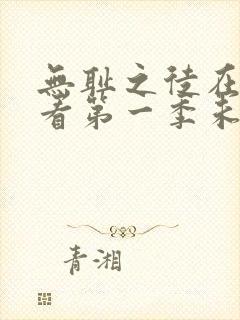 無耻之徒在
看第一季未
青湘